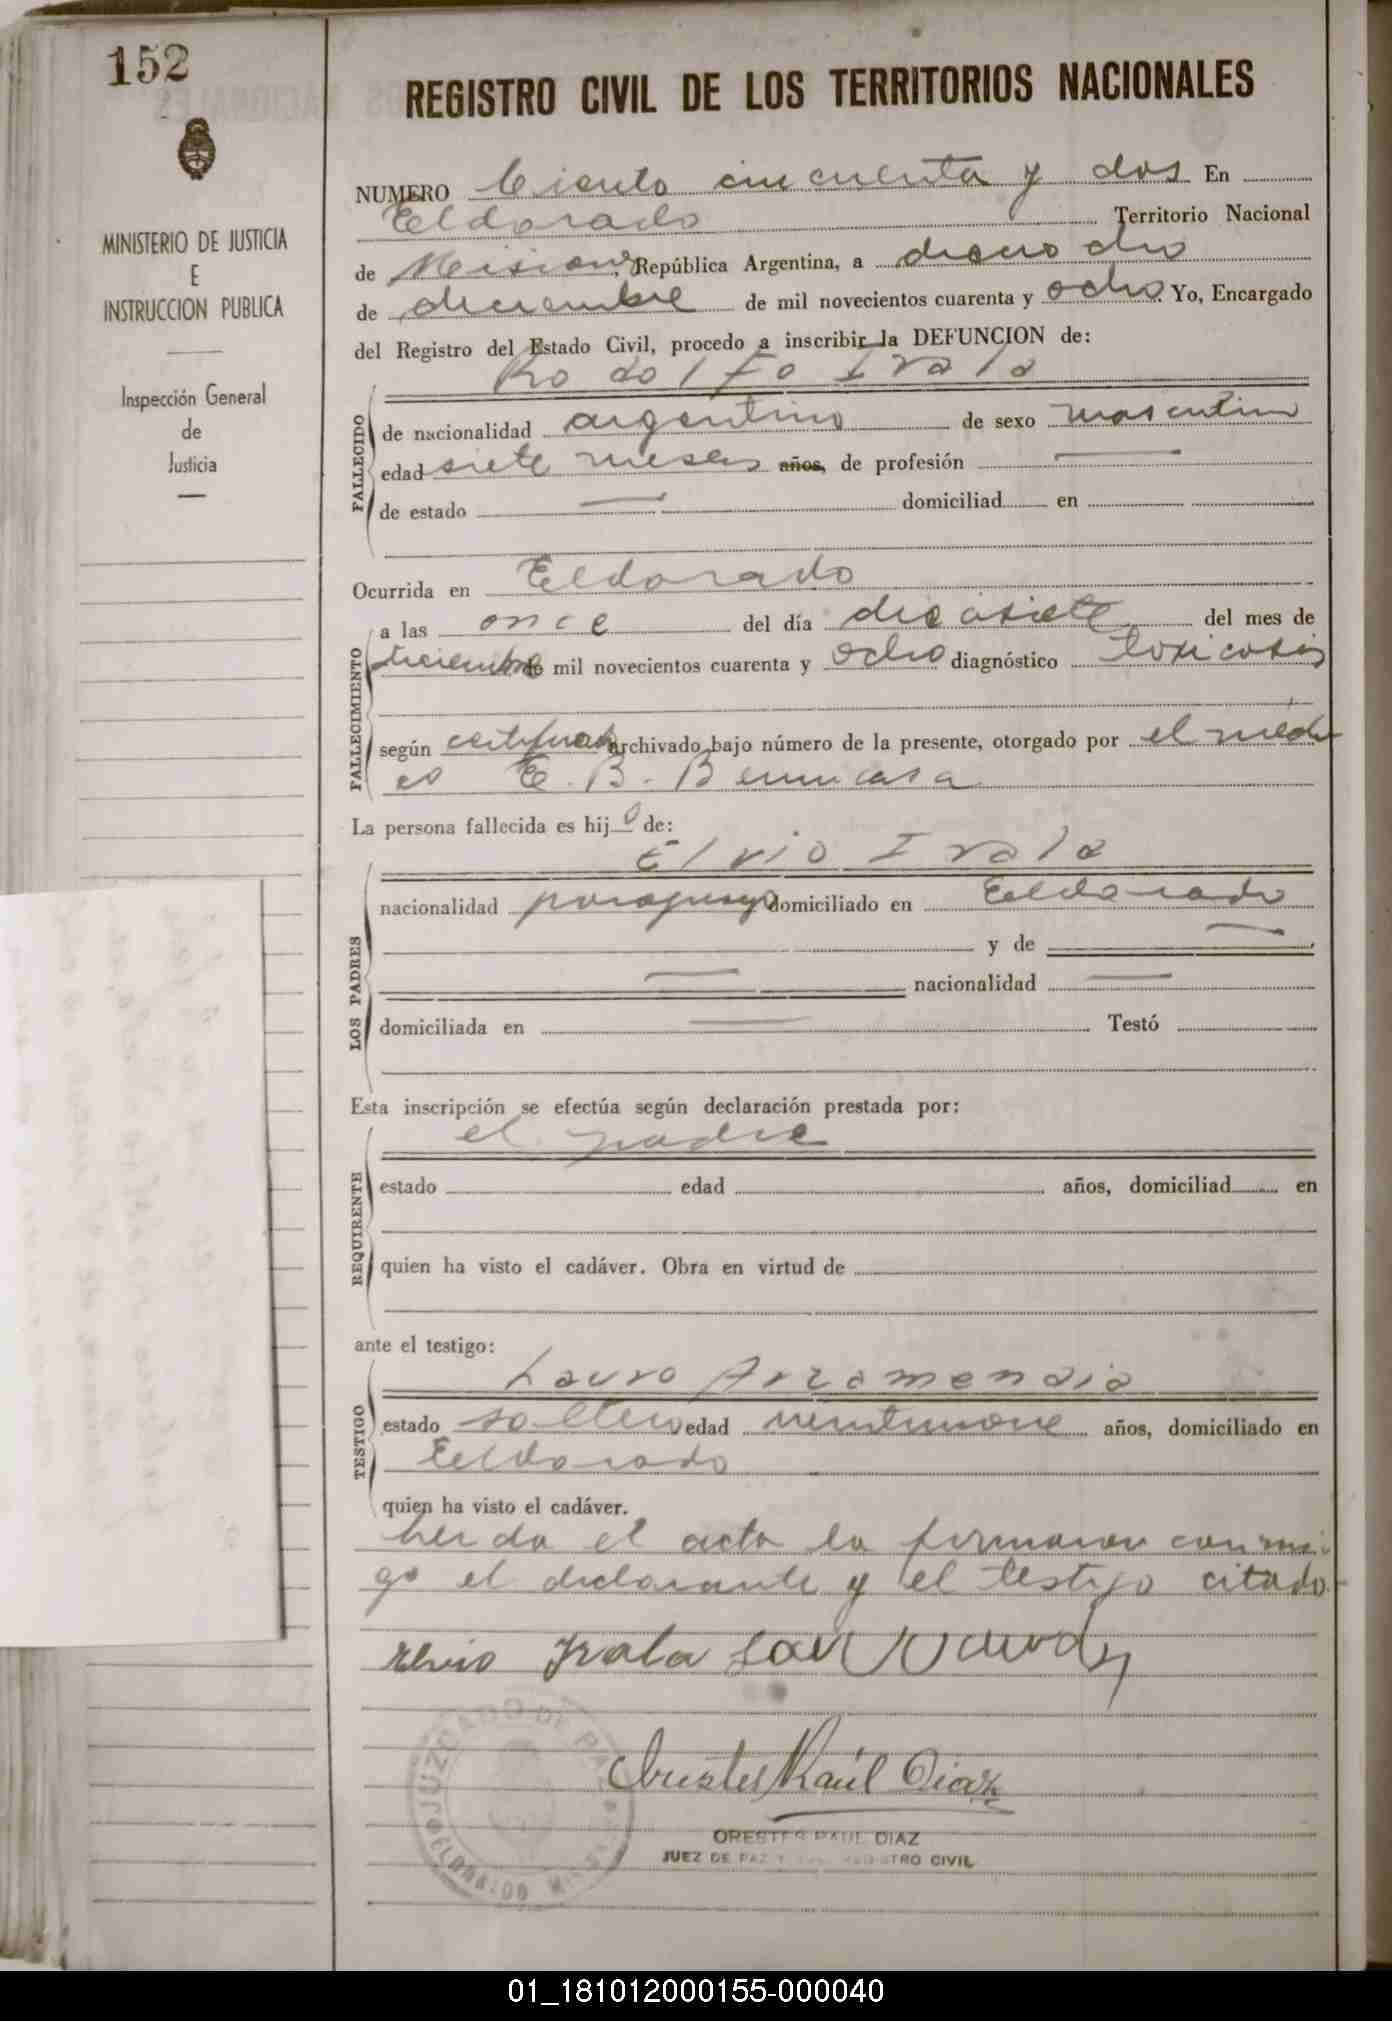 152
REGISTRO CIVIL DE LOS TERRITORIOS NACIONALES
MINISTERIO DE JUSTICIA
E
INSTRUCCION PUBLICA
Inspección General
de
Justicia
NUMERO Ciento cincuenta y dos En
Eldorado Territorio Nacional
de Misiones, República Argentina, a
de diciembre de mil novecientos cuarenta y ocho. Yo, Encargado
del Registro del Estado Civil, procedo a inscribir la DEFUNCION de:
Rodolfo Irala
FALLECIDO
de nacionalidad argentino de sexo masculino
edad siete meses años, de profesión —
de estado — domiciliad en
Ocurrida en Eldorado
FALLECIMIENTO
a las once del día diecisiete del mes de
diciembre de mil novecientos cuarenta y ocho diagnóstico toxicosis
según certificado archivado bajo número de la presente, otorgado por el médi
co E. B.
La persona fallecida es hijo de:
Elvio Irala
LOS PADRES
nacionalidad paraguayo domiciliado en Eldorado
y de —
— nacionalidad —
domiciliada en — Testó
Esta inscripción se efectúa según declaración prestada por:
el padre
REQUIRENTE
estado edad años, domiciliad en
quien ha visto el cadáver. Obra en virtud de
ante el testigo:
Lauro Arzamendia
TESTIGO
estado soltero edad veintinueve años, domiciliado en
Eldorado
quien ha visto el cadáver.
Leida el acta la firmaron conmi-
go el declarante y el testigo citado.-
Elvio Irala
Orestes Raúl Diaz
JUZGADO DE PAZ
ELDORADO MISIONES
ORESTES RAUL DIAZ
JUEZ DE PAZ REGISTRO CIVIL
01_181012000155-000040